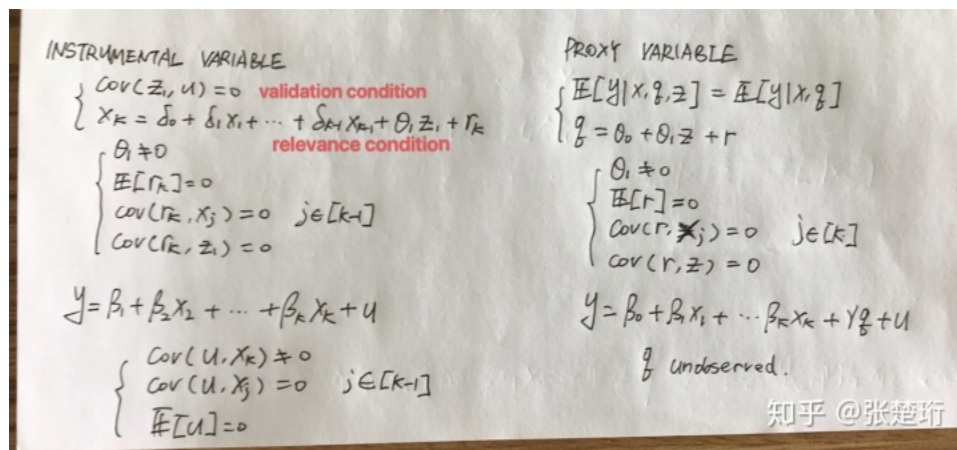 INSTRUMENTAL VARIABLE
Cov(z₁, u) = 0 validation condition
x_K = δ₀ + δ₁x₁ + ⋯ + δ_{K-1}x_{K-1} + θ₁z₁ + r_K
relevance condition
θ₁ ≠ 0
𝔼[r_K] = 0
cov(r_K, x_j) = 0 j∈[K-1]
Cov(r_K, z₁) = 0
y = β₁ + β₂x₂ + ⋯ + β_K x_K + u
Cov(u, x_K) ≠ 0
Cov(u, x_j) = 0 j∈[K-1]
𝔼[u] = 0
PROXY VARIABLE
𝔼[y|x, q, z] = 𝔼[y|x, q]
q = θ₀ + θ₁z + r
θ₁ ≠ 0
𝔼[r] = 0
Cov(r, x_j) = 0 j∈[K]
cov(r, z) = 0
y = β₀ + β₁x₁ + ⋯ β_K x_K + γq + u
q undoserved.
知乎 @张楚珩